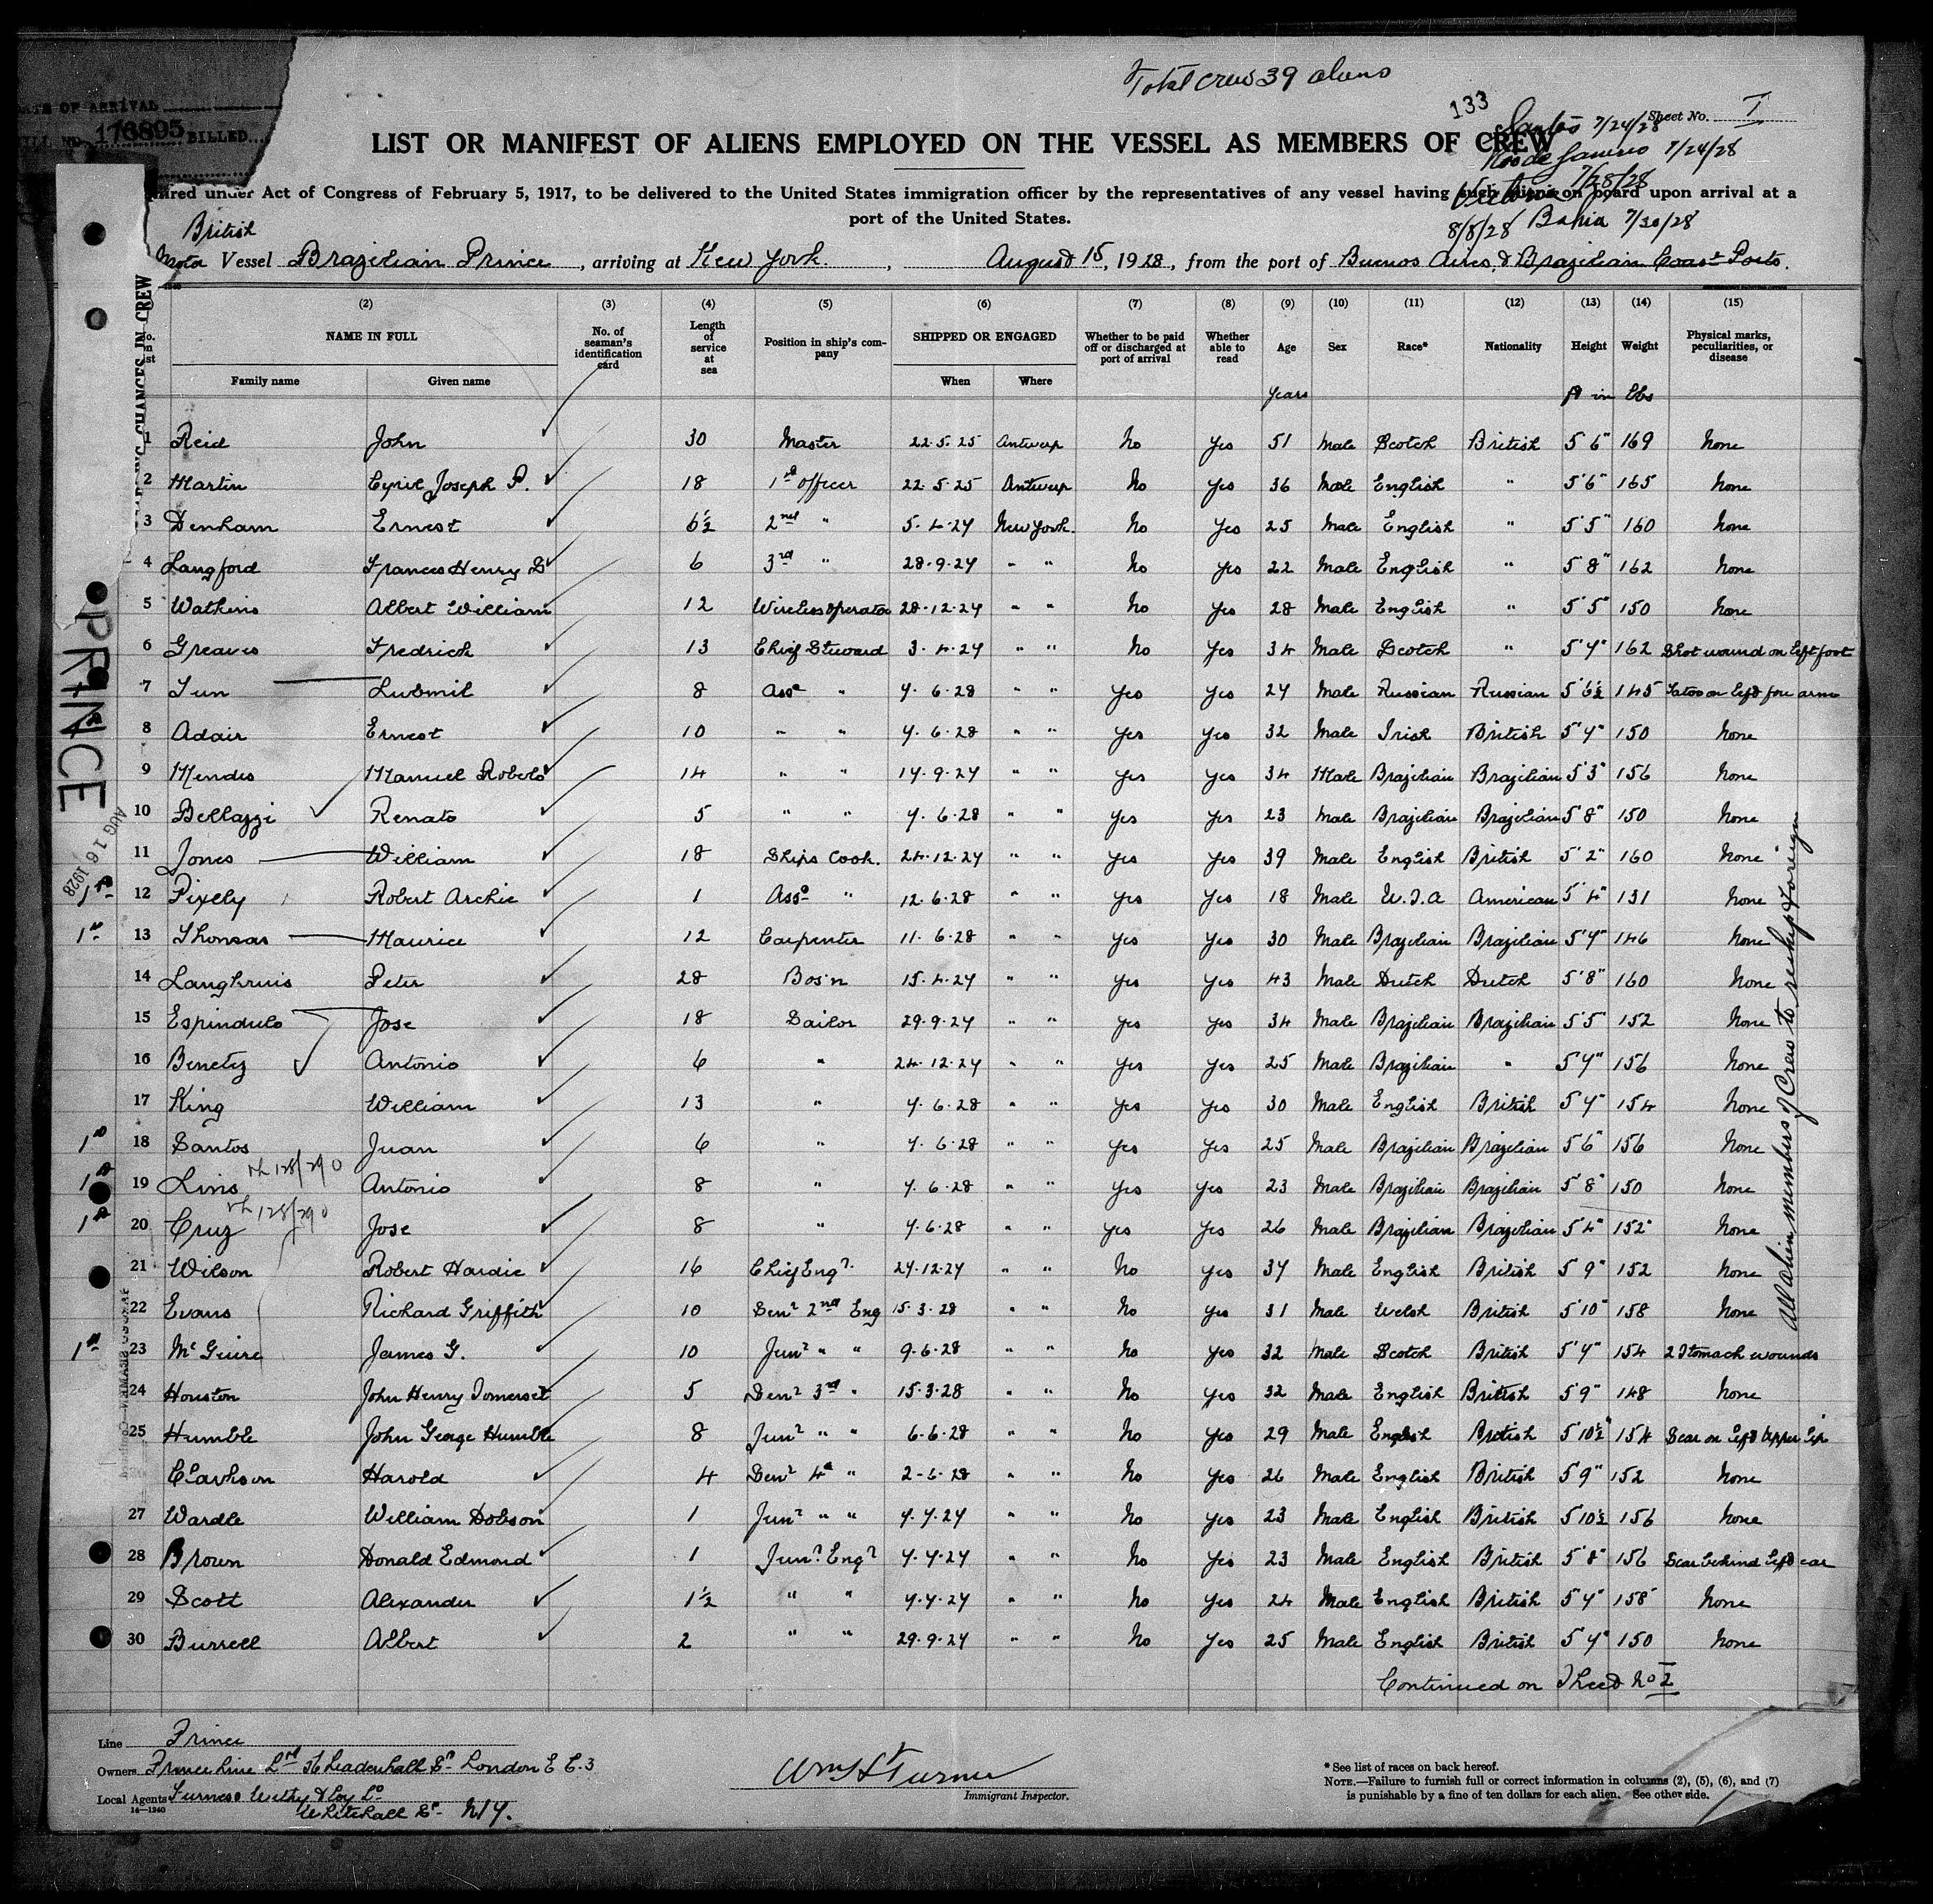 Total Crew 39 aliens
DATE OF ARRIVAL
BILL NO. 176895 BILLED
133
Sheet No. I
Santos 7/24/28
LIST OR MANIFEST OF ALIENS EMPLOYED ON THE VESSEL AS MEMBERS OF CREW
Rio de Janeiro 7/24/28
Victoria 7/28/28
ired under Act of Congress of February 5, 1917, to be delivered to the United States immigration officer by the representatives of any vessel having such aliens on board upon arrival at a
port of the United States.
8/8/28 Bahia 7/30/28
British
Motor Vessel Brazilian Prince, arriving at New York, August 15, 1928, from the port of Buenos Aires & Brazilian Coast Ports.
(2) (3) (4) (5) (6) (7) (8) (9) (10) (11) (12) (13) (14) (15)
NAME IN FULL
Family name Given name
No. of seaman's identification card
Length of service at sea
Position in ship's company
SHIPPED OR ENGAGED
When Where
Whether to be paid off or discharged at port of arrival
Whether able to read
Age Sex Race* Nationality Height Weight
Physical marks, peculiarities, or disease
Years ft in lbs
1 Reid John 30 Master 22.5.25 Antwerp No Yes 51 Male Scotch British 5 6" 169 None
2 Martin Cyril Joseph P. 18 1st officer 22.5.25 Antwerp No Yes 36 Male English " 5'6" 165 None
3 Denham Ernest 6½ 2nd " 5.4.27 New York No Yes 25 Male English " 5'5" 160 None
4 Langford Frances Henry D 6 3rd " 28.9.27 " " No Yes 22 Male English " 5 8" 162 None
5 Watkins Albert William 12 Wireless operator 28.12.27 " " No Yes 28 Male English " 5'5" 150 None
6 Greaves Fredrick 13 Chief Steward 3.4.27 " " No Yes 34 Male Scotch " 5'7" 162 Shot wound on left foot
7 Tun Ludmil 8 Asst " 7.6.28 " " Yes Yes 27 Male Russian Russian 5'6½ 145 Tatoo on left fore arm
8 Adair Ernest 10 " " 7.6.28 " " Yes Yes 32 Male Irish British 5'7" 150 None
9 Mendes Manuel Roberto 14 " " 17.9.27 " " Yes Yes 34 Male Brazilian Brazilian 5'3" 156 None
10 Bellazzi Renato 5 " " 7.6.28 " " Yes Yes 23 Male Brazilian Brazilian 5'8" 150 None
11 Jones William 18 Ships Cook. 24.12.27 " " Yes Yes 39 Male English British 5'2" 160 None
1st 12 Pixely Robert Archie 1 Asst " 12.6.28 " " Yes Yes 18 Male U.S.A American 5'4" 131 None
1st 13 Thonsas Maurice 12 Carpenter 11.6.28 " " Yes Yes 30 Male Brazilian Brazilian 5'7" 146 None
14 Langkruis Peter 28 Bos'n 15.4.27 " " Yes Yes 43 Male Dutch Dutch 5'8" 160 None
15 Espindulo Jose 18 Sailor 29.9.27 " " Yes Yes 34 Male Brazilian Brazilian 5'5" 152 None
16 Benetiz Antonio 6 " 24.12.27 " " Yes Yes 25 Male Brazilian " 5'7" 156 None
17 King William 13 " 7.6.28 " " Yes Yes 30 Male English British 5'7" 154 None
1st 18 Santos Juan 6 " 7.6.28 " " Yes Yes 25 Male Brazilian Brazilian 5'6" 156 None
1st 19 Lins Antonio 8 " 7.6.28 " " Yes Yes 23 Male Brazilian Brazilian 5'8" 150 None
1st 20 Cruz Jose 8 " 7.6.28 " " Yes Yes 26 Male Brazilian Brazilian 5'4" 152 None
21 Wilson Robert Hardie 16 Chief Engr 27.12.27 " " No Yes 37 Male English British 5 9" 152 None
22 Evans Richard Griffith 10 Senr 2nd Eng 15.3.28 " " No Yes 31 Male Welsh British 5'10" 158 None
1st 23 McGuire James G. 10 Junr " " 9.6.28 " " No Yes 32 Male Scotch British 5'7" 154 2 Stomach wounds
24 Houston John Henry Somerset 5 Senr 3rd " 15.3.28 " " No Yes 32 Male English British 5'9" 148 None
25 Humble John George Humble 8 Junr " " 6.6.28 " " No Yes 29 Male English British 5'10½" 154 Scar on left upper lip
Clarkson Harold 4 Senr 4th " 2-6.28 " " No Yes 26 Male English British 5'9" 152 None
27 Wardle William Dobson 1 Junr " " 7.7.27 " " No Yes 23 Male English British 5 10½ 156 None
28 Brown Donald Edmond 1 Junr Engr 7.7.27 " " No Yes 23 Male English British 5'8" 156 Scar behind left ear
29 Scott Alexander 1½ " " 7.7.27 " " No Yes 24 Male English British 5'7" 158 None
30 Burrell Albert 2 " " 29.9.27 " " No Yes 25 Male English British 5'7" 150 None
Continued on Sheet No 2
All alien members of Crew to reship foreign
PRINCE
AUG 16 1928
CHANGES IN CREW
Line Prince
Owners Prince Line Ltd 56 Leadenhall St London E C.3
Local Agents Furness Withy & Coy Ld
Whitehall St N.Y.
14—1240
Wm S Turner
Immigrant Inspector.
* See list of races on back hereof.
NOTE.—Failure to furnish full or correct information in columns (2), (5), (6), and (7)
is punishable by a fine of ten dollars for each alien. See other side.